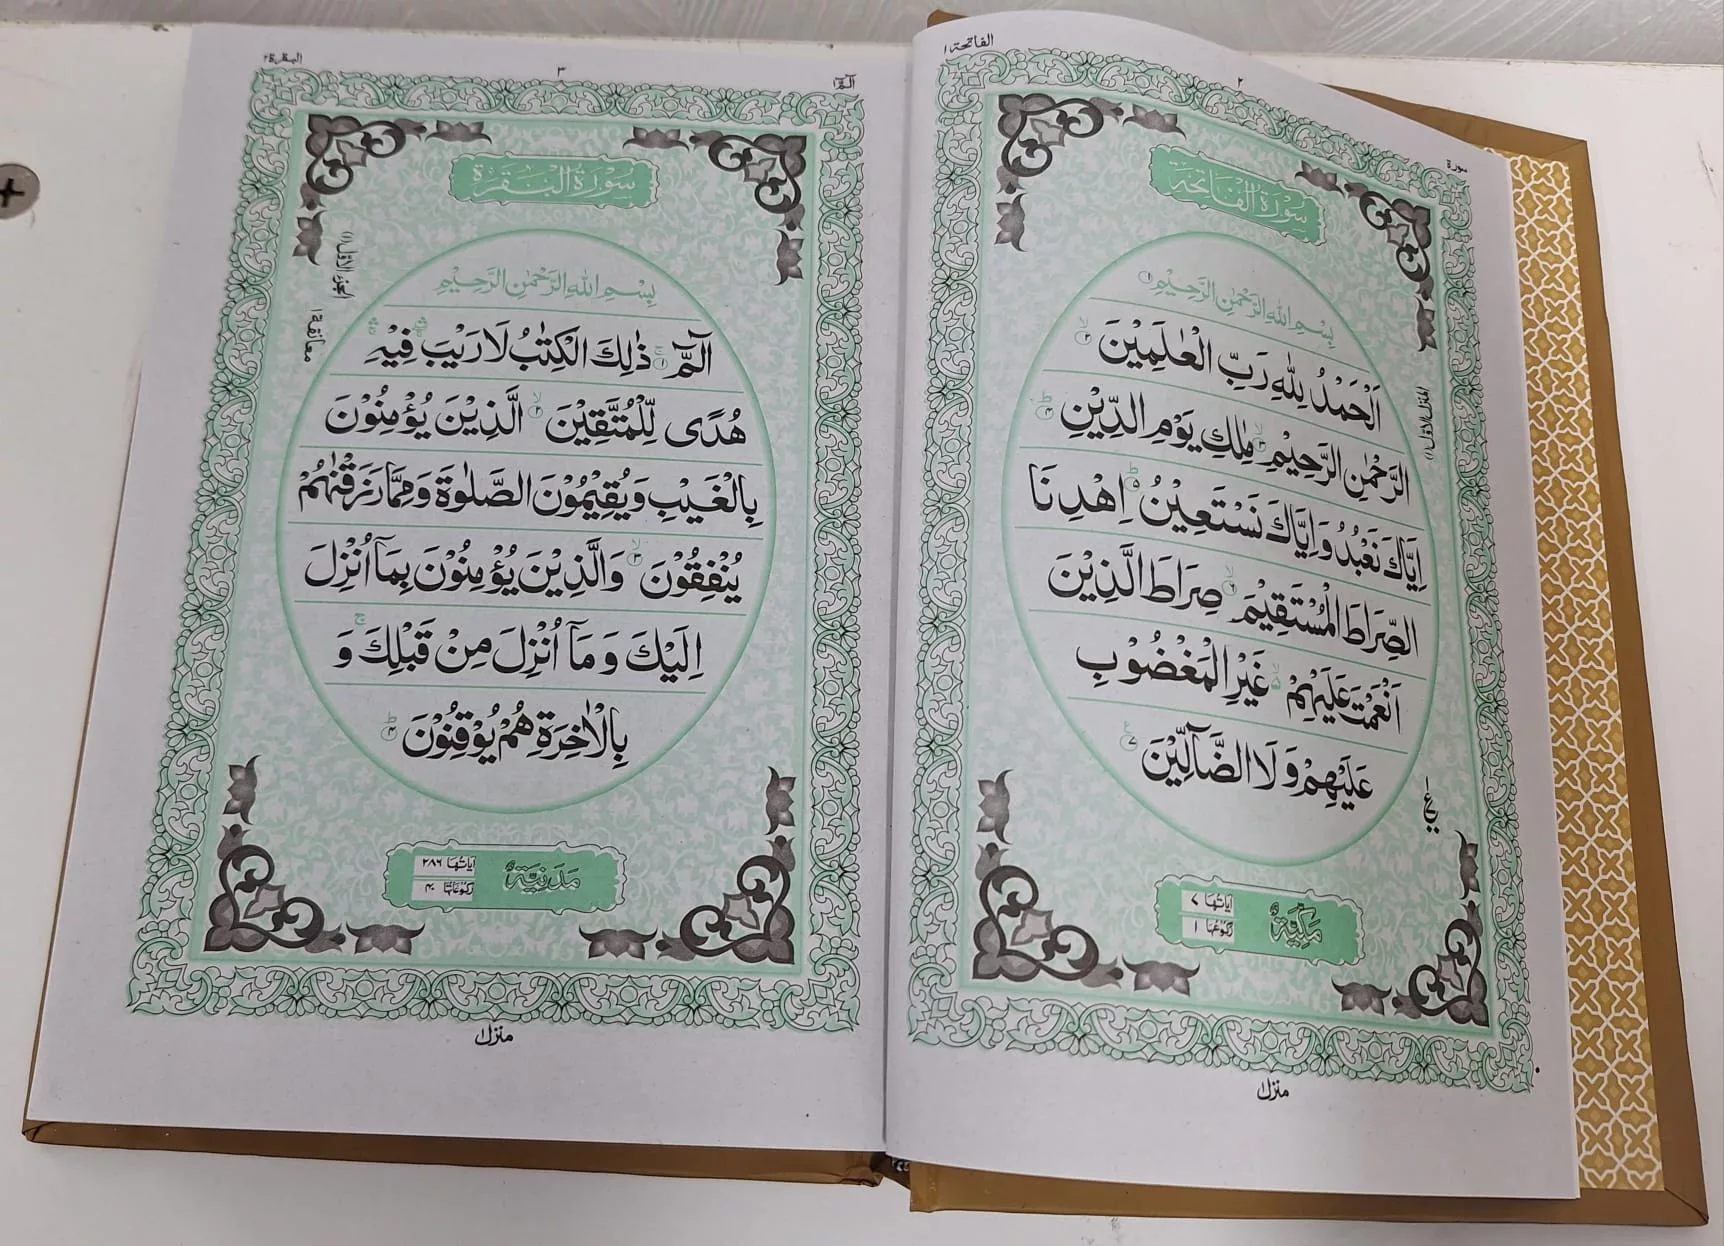 الفاتحة ١
٢
سورة
سُوْرَةُ الْفَاتِحَةِ
بِسْمِ اللّٰهِ الرَّحْمٰنِ الرَّحِيْمِ ١
اَلْحَمْدُ لِلّٰهِ رَبِّ الْعٰلَمِيْنَ ۙ٢
الرَّحْمٰنِ الرَّحِيْمِ ۙ٣ مٰلِكِ يَوْمِ الدِّيْنِ ؕ٤
اِيَّاكَ نَعْبُدُ وَ اِيَّاكَ نَسْتَعِيْنُ ؕ٥ اِهْدِنَا
الصِّرَاطَ الْمُسْتَقِيْمَ ۙ٦ صِرَاطَ الَّذِيْنَ
اَنْعَمْتَ عَلَيْهِمْ ۙ۬ غَيْرِ الْمَغْضُوْبِ
عَلَيْهِمْ وَلَا الضَّآلِّيْنَ ٧ ع
المنزل الاول (١)
مَكِّيَّةٌ
اٰيَاتُهَا ٧
رُكُوْعُهَا ١
منزل ١
البقرة ٢
٣
الٓمّٓ ١
سُوْرَةُ الْبَقَرَةِ
الجزء الاول (١)
معانقة ١
بِسْمِ اللّٰهِ الرَّحْمٰنِ الرَّحِيْمِ
الٓمّٓ ۚ١ ذٰلِكَ الْكِتٰبُ لَا رَيْبَ ۛۖ فِيْهِ ۛۚ
هُدًى لِّلْمُتَّقِيْنَ ۙ٢ الَّذِيْنَ يُؤْمِنُوْنَ
بِالْغَيْبِ وَ يُقِيْمُوْنَ الصَّلٰوةَ وَ مِمَّا رَزَقْنٰهُمْ
يُنْفِقُوْنَ ۙ٣ وَالَّذِيْنَ يُؤْمِنُوْنَ بِمَآ اُنْزِلَ
اِلَيْكَ وَ مَآ اُنْزِلَ مِنْ قَبْلِكَ ۚ وَ
بِالْاٰخِرَةِ هُمْ يُوْقِنُوْنَ ؕ٤
مَدَنِيَّةٌ
اٰيَاتُهَا ٢٨٦
رُكُوْعَاتُهَا ٤٠
منزل ١